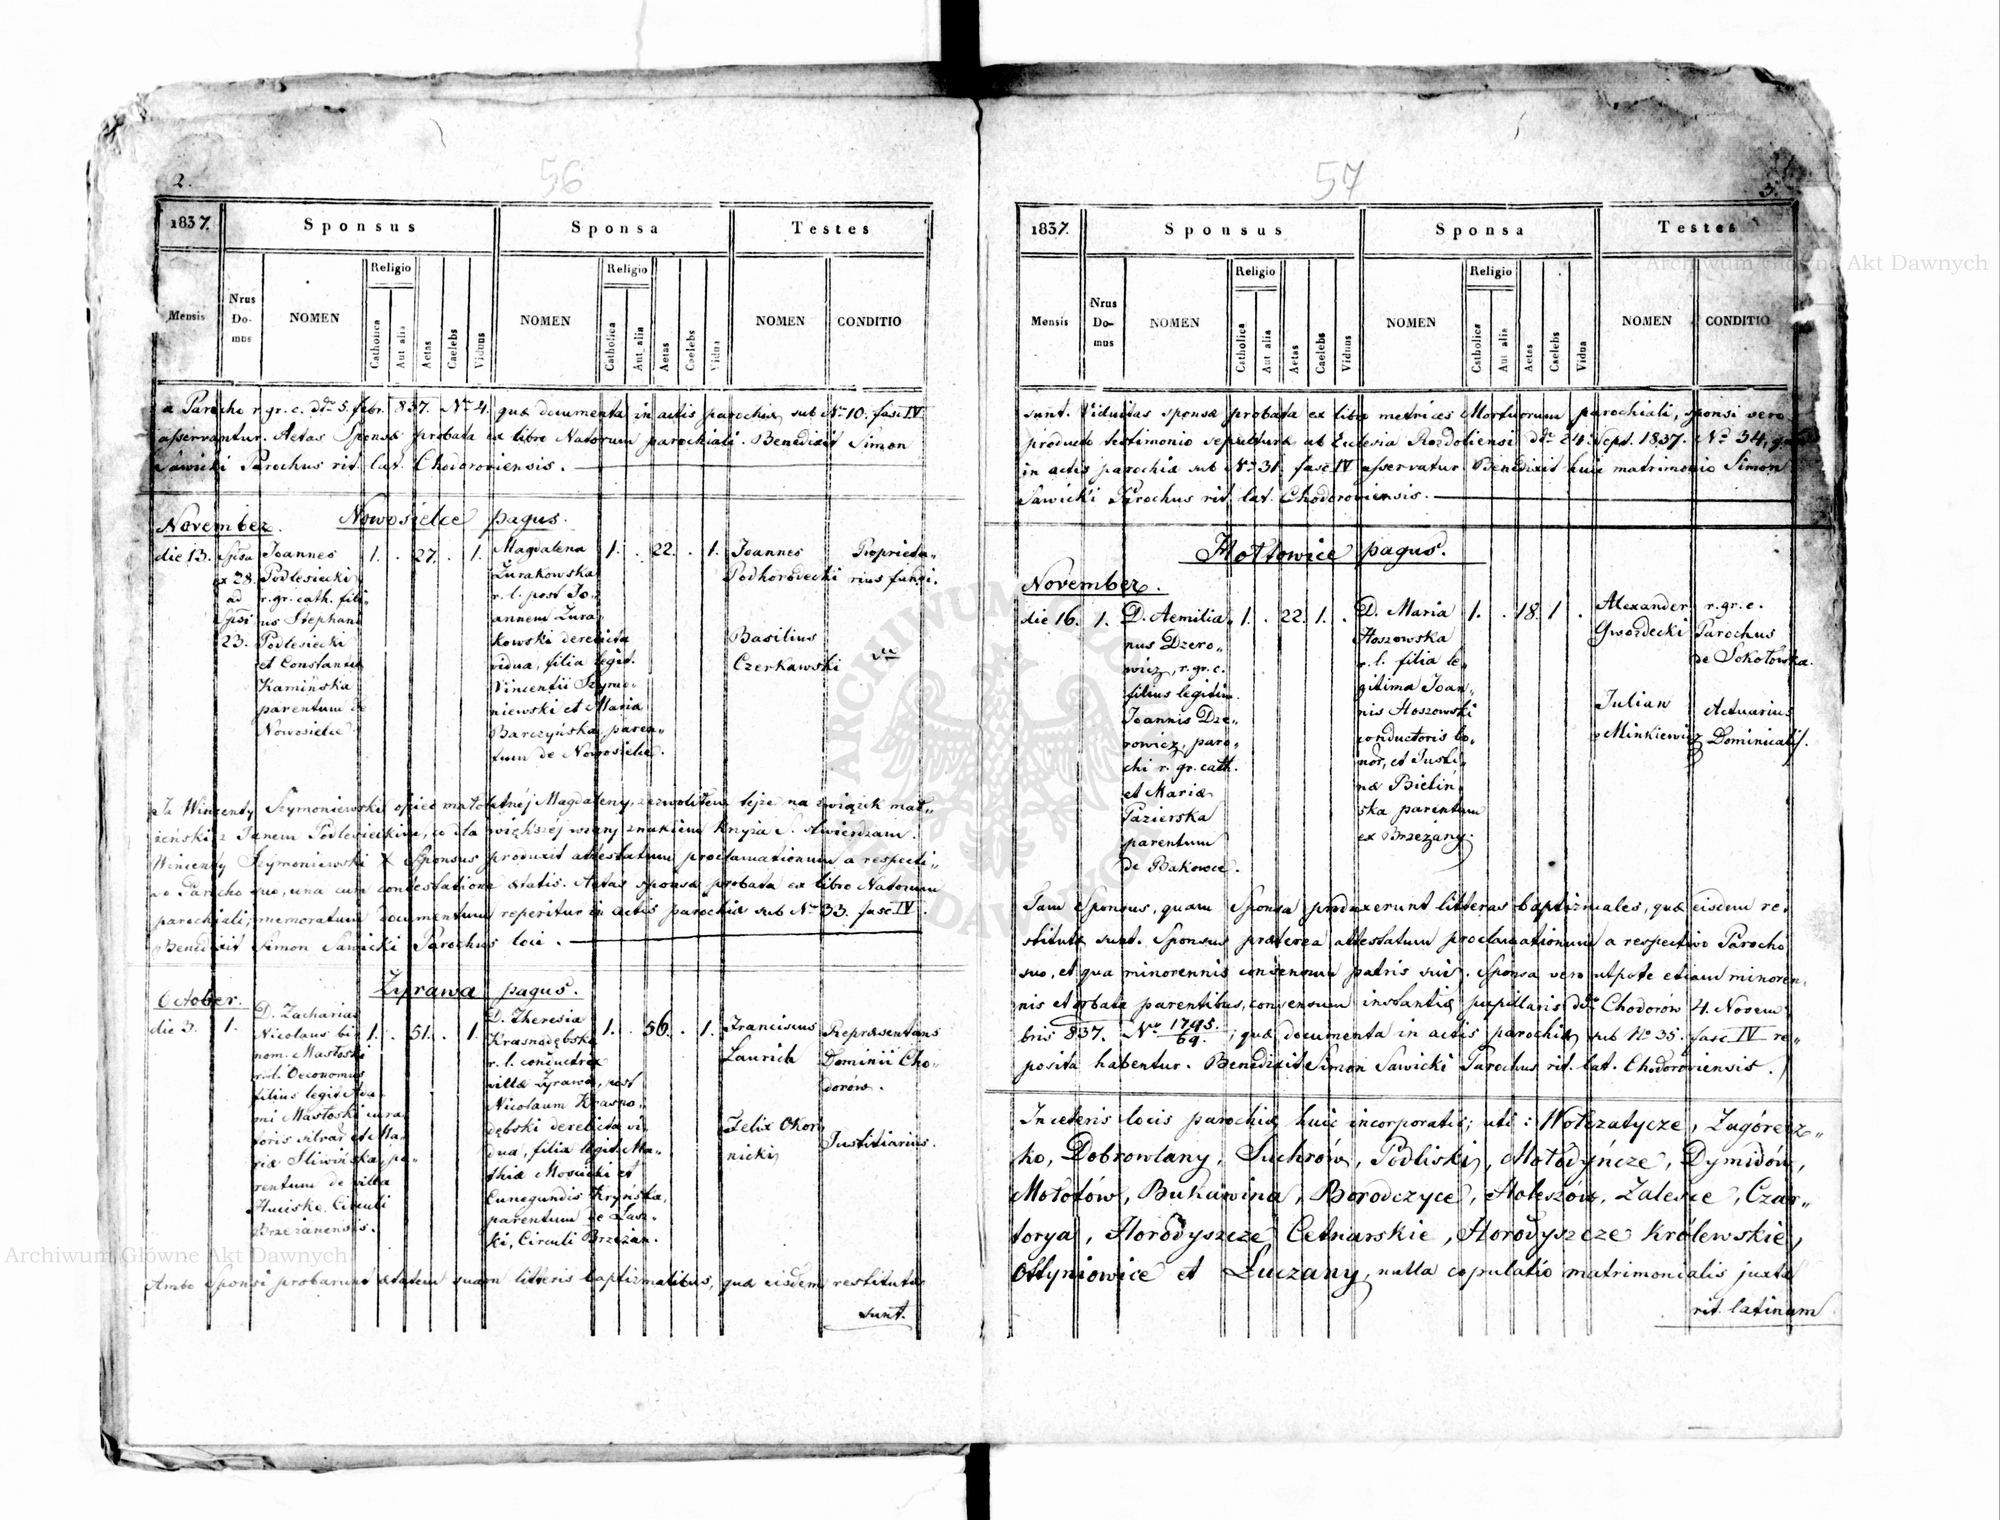 2.
56
1837.
Sponsus
Sponsa
Testes
Mensis
Nrus Do- mus
NOMEN
Religio
Catholica
Aut alia
Aetas
Caelebs
Viduus
NOMEN
Religio
Catholica
Aut alia
Aetas
Caelebs
Vidua
NOMEN
CONDITIO
a Parocho r. gr. c. dto 5. febr. 837. Nro 4. quæ documenta in actis parochiæ sub No 10. fasc IV
asservantur. Aetas Sponsæ probata ex libro Natorum parochiali. Benedixit Simon
Sawicki Parochus rit. lat. Chodoroviensis.
November. Nowosielce pagus.
die 13.
Spsa
ex 28.
ad
Spsi
23.
Joannes
Podlesiecki
r. gr. cath. fili-
us Stephani
Podlesiecki
et Constantia
Kamińska
parentum de
Nowosielce
1. . 27. . 1.
Magdalena
Żurakowska
r. l. post Jo-
annem Żura-
kowski derelicta
vidua, filia legit.
Vincentii Szymo-
niewski et Maria
Barczyńska, paren-
tum de Nowosielce.
1. . 22. . 1.
Joannes
Podhorodecki
Proprieta-
rius fundi.
Basilius
Czerkawski
Ja Wincenty Szymoniewski ojciec małoletnéj Magdaleny, zezwoliłem tejże na związek mał-
żeński z Janem Podlesieckim, co dla większéj wiary znakiem krzyża S. stwierdzam.
Wincenty Szymoniewski X Sponsus produxit attestatum proclamationum a respecti-
vo Parocho suo, una cum contestatione ætatis. Aetas sponsæ probata ex libro Natorum
parochiali; memoratum documentum reperitur in actis parochiæ sub No 33. fasc IV.
Benedixit Simon Sawicki Parochus loci.
October. Żyrawa pagus.
die 3. 1.
D. Zacharias
Nicolaus bi-
nom. Mastoski
r. l. Oeconomus
filius legit. Ada-
mi Mastoski cura-
toris silvar. et Ma-
riæ Sliwińska, pa-
rentum de villa
Huiske, Circuli
Brzezanensis.
1. . 51. . 1.
D. Theresia
Krasnodębska
r. l. conductrix
villæ Żyrawa, post
Nicolaum Krasno-
dębski derelicta vi-
dua, filia legit. Ma-
thiæ Moscicki et
Cunegundis Kryńska,
parentum de Lasz-
ki, Circuli Brzezan.
1. . 56. . 1.
Franciscus
Laurich
Repræsentans
Dominii Cho-
dorów.
Felix Okor
nicki
Justitiarius.
Ambo Sponsi probarunt ætatem suam litteris baptizmalibus, quæ eisdem restitutæ
sunt.
57
3.
1837.
Sponsus
Sponsa
Testes
Mensis
Nrus Do- mus
NOMEN
Religio
Catholica
Aut alia
Aetas
Caelebs
Viduus
NOMEN
Religio
Catholica
Aut alia
Aetas
Caelebs
Vidua
NOMEN
CONDITIO
sunt. Viduitas sponsæ probata ex libro metrices Mortuorum parochiali, sponsi vero
producto testimonio sepulturæ ab Eclesia Rozdoliensi dto 24. Sept. 1837. No 34,
in actis parochiæ sub No 31. fasc IV asservatur. Benedixit huic matrimonio Simon
Sawicki Parochus rit. lat. Chodoroviensis.
Hołłowice pagus.
November.
die 16. 1.
D. Aemilia-
nus Dzero-
wicz, r. gr. c.
filius legitim.
Joannis Dze-
rowicz, paro-
chi r. gr. cath.
et Mariæ
Pazierska
parentum
de Bakowce.
1. . 22. 1. .
D. Maria
Hoszowska
r. l. filia le-
gitima Joan-
nis Hoszowski
conductoris bo-
nor, et Justi-
næ Bieliń-
ska parentum
ex Brzezany.
1. . 18. 1 .
Alexander
Gwozdecki
r. gr. c.
Parochus
de Sokołowka.
Julian
Minkiewicz
Actuarius
Dominicalis.
Tam Sponsus, quam Sponsa produxerunt litteras baptizmales, quæ eisdem re-
stitutæ sunt. Sponsus præterea attestatum proclamationum a respectivo Parocho
suo, et qua minorennis consensum patris sui. Sponsa vero utpote etiam minoren-
nis et orbata parentibus, consensum instantiæ pupillaris dto Chodorów 4. Novem
bris 837. No 1795/69.; quæ documenta in actis parochiæ sub No 35. fasc IV re-
posita habentur. Benedixit Simon Sawicki Parochus rit. lat. Chodoroviensis.
In ceteris locis parochiæ huic incorporatis; uti: Wołczatycze, Zagórecz-
ko, Dobrowlany, Suchrów, Podliski, Mołodyńcze, Dymidów,
Mołotów, Bukawina, Borodczyce, Holeszów, Zalesce, Czar-
torya, Horodyszcze Cetnarskie, Horodyszcze Królewskie,
Ottyniowice et Łuczany, nulla copulatio matrimonialis juxta
rit. latinum
Archiwum Główne Akt Dawnych
Archiwum Główne Akt Dawnych